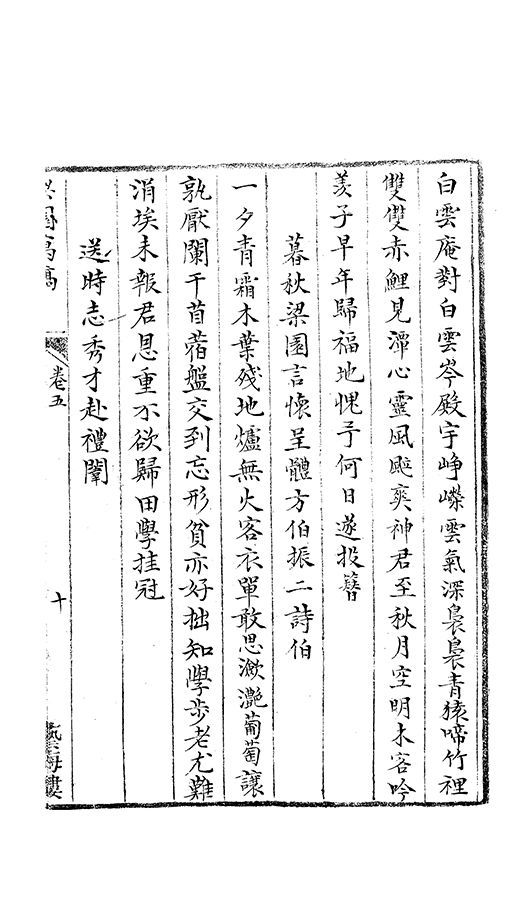 白雲庵對白雲岑殿宇崢嶸雲氣深裊裊青猿啼竹裡
雙雙赤鯉見潭心靈風颯爽神君至秋月空明木客吟
羨子早年歸福地愧予何日遂投簪
暮秋梁園言懷呈體方伯振二詩伯
一夕青霜木葉殘地爐無火客衣單敢思瀲灔葡萄讓
孰厭闌干苜蓿盤交到忘形貧亦好拙知學步老尤難
涓埃未報君恩重不欲歸田學挂冠
送時志秀才赴禮闈
卷五
十